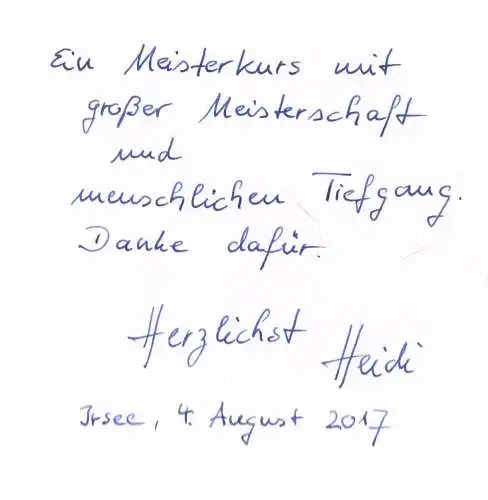 Ein Meisterkurs mit
großer Meisterschaft
und
menschlichen Tiefgang.
Danke dafür.
Herzlichst Heidi
Irsee, 4. August 2017